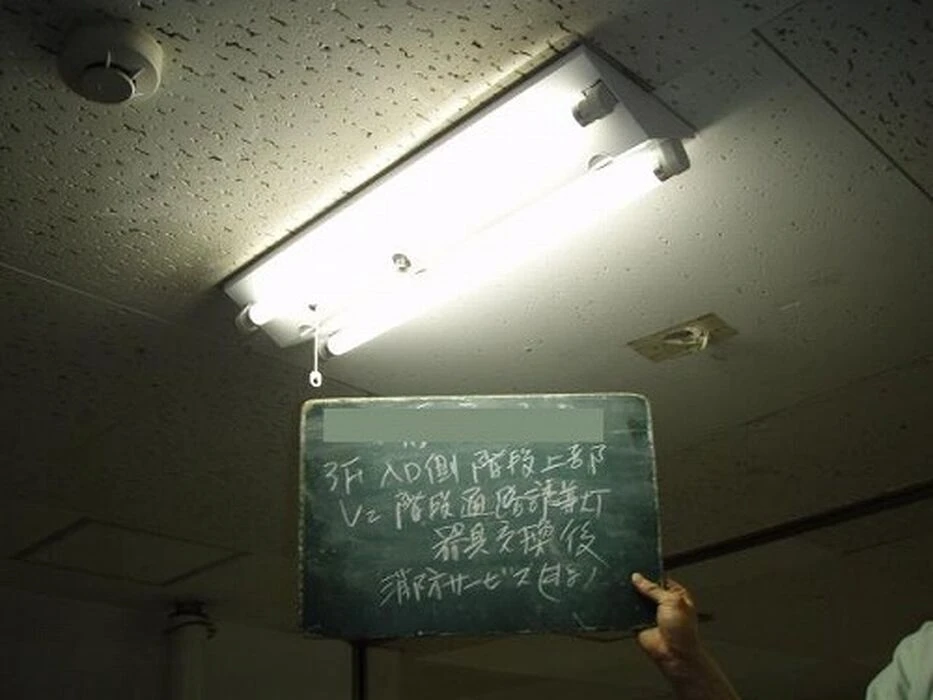 3F 入口側 階段上部
階段通路誘導灯
器具交換後
消防サービス(株)